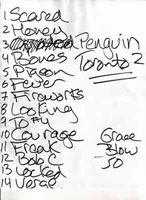 1 Scared
2 Honey
3 Penguin
4 Bones
5 Pigeon
6 Fever
7 Fireworks
8 Cooking
9 To Fly
10 Courage
11 Freak
12 Bob C
13 Locked
14 Verse
Toronto 2
Grace
Blow
50